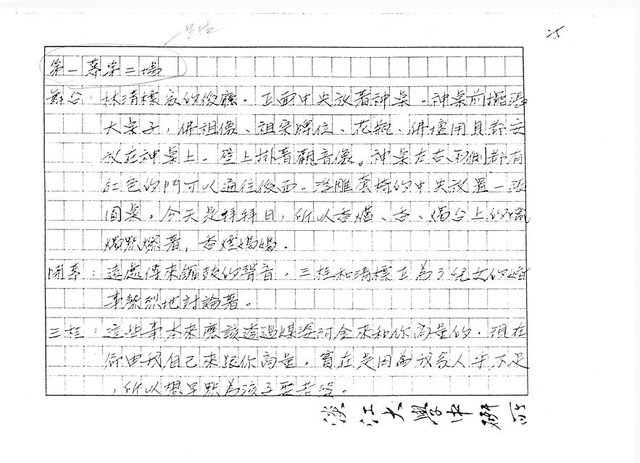 25
第一幕第二場
舞台：林清標家的後廳。正面中央放著神桌，神桌前擺張
大桌子，佛祖像、祖宗牌位、花瓶、佛壇用具都安
放在神桌上。壁上掛著觀音像。神桌左右兩側都有
紅色的門可以通往後面。客廳的中央放置一張
圓桌，今天是拜拜日，所以香爐、香、燭台上的
燭點燃著，香煙嫋嫋。
開幕：遠處傳來鑼鼓的聲音，三柱和清標正為了兒女的婚
事熱烈地討論著。
三柱：這些事本來應該透過媒婆阿金來和你商量的，現在
卻由我自己來跟你商量，實在是因為我家人手不足
，所以想早點為孩子娶老婆。
淡江大學中研所